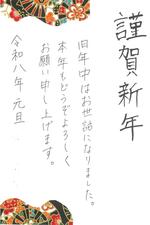 謹賀新年
旧年中はお世話になりました。
本年もどうぞよろしく
お願い申し上げます。
令和八年 元旦